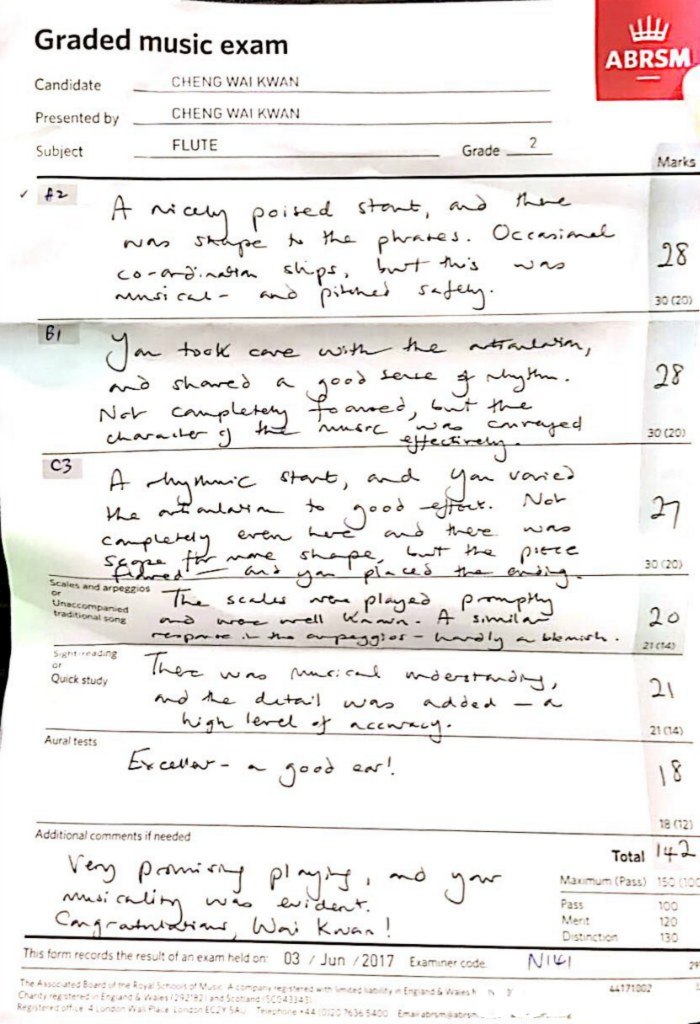 Graded music exam
ABRSM
Candidate CHENG WAI KWAN
Presented by CHENG WAI KWAN
Subject FLUTE Grade 2
Marks
✓ A2
A nicely poised start, and there
was shape to the phrases. Occasional
co-ordination slips, but this was
musical - and pitched safely.
28
30 (20)
B1
You took care with the articulation,
and shared a good sense of rhythm.
Not completely focused, but the
character of the music was conveyed
effectively.
28
30 (20)
C3
A rhythmic start, and you varied
the articulation to good effect. Not
completely even here and there was
scope for more shape, but the piece
flowed - and you placed the ending.
27
30 (20)
Scales and arpeggios
or
Unaccompanied
traditional song
The scales were played promptly
and were well known. A similar
response in the arpeggios - hardly a blemish.
20
21 (14)
Sight-reading
or
Quick study
There was musical understanding,
and the detail was added - a
high level of accuracy.
21
21 (14)
Aural tests
Excellent - a good ear!
18
18 (12)
Additional comments if needed
Very promising playing, and your
musicality was evident.
Congratulations, Wai Kwan!
Total 142
Maximum (Pass) 150 (100
Pass 100
Merit 120
Distinction 130
This form records the result of an exam held on: 03 / Jun / 2017 Examiner code N141
44171002
The Associated Board of the Royal Schools of Music. A company registered with limited liability in England & Wales
Charity registered in England & Wales (292182) and Scotland (SC043343)
Registered office 4 London Wall Place London EC2Y 5AU Telephone +44 (0)20 7636 5400 Email